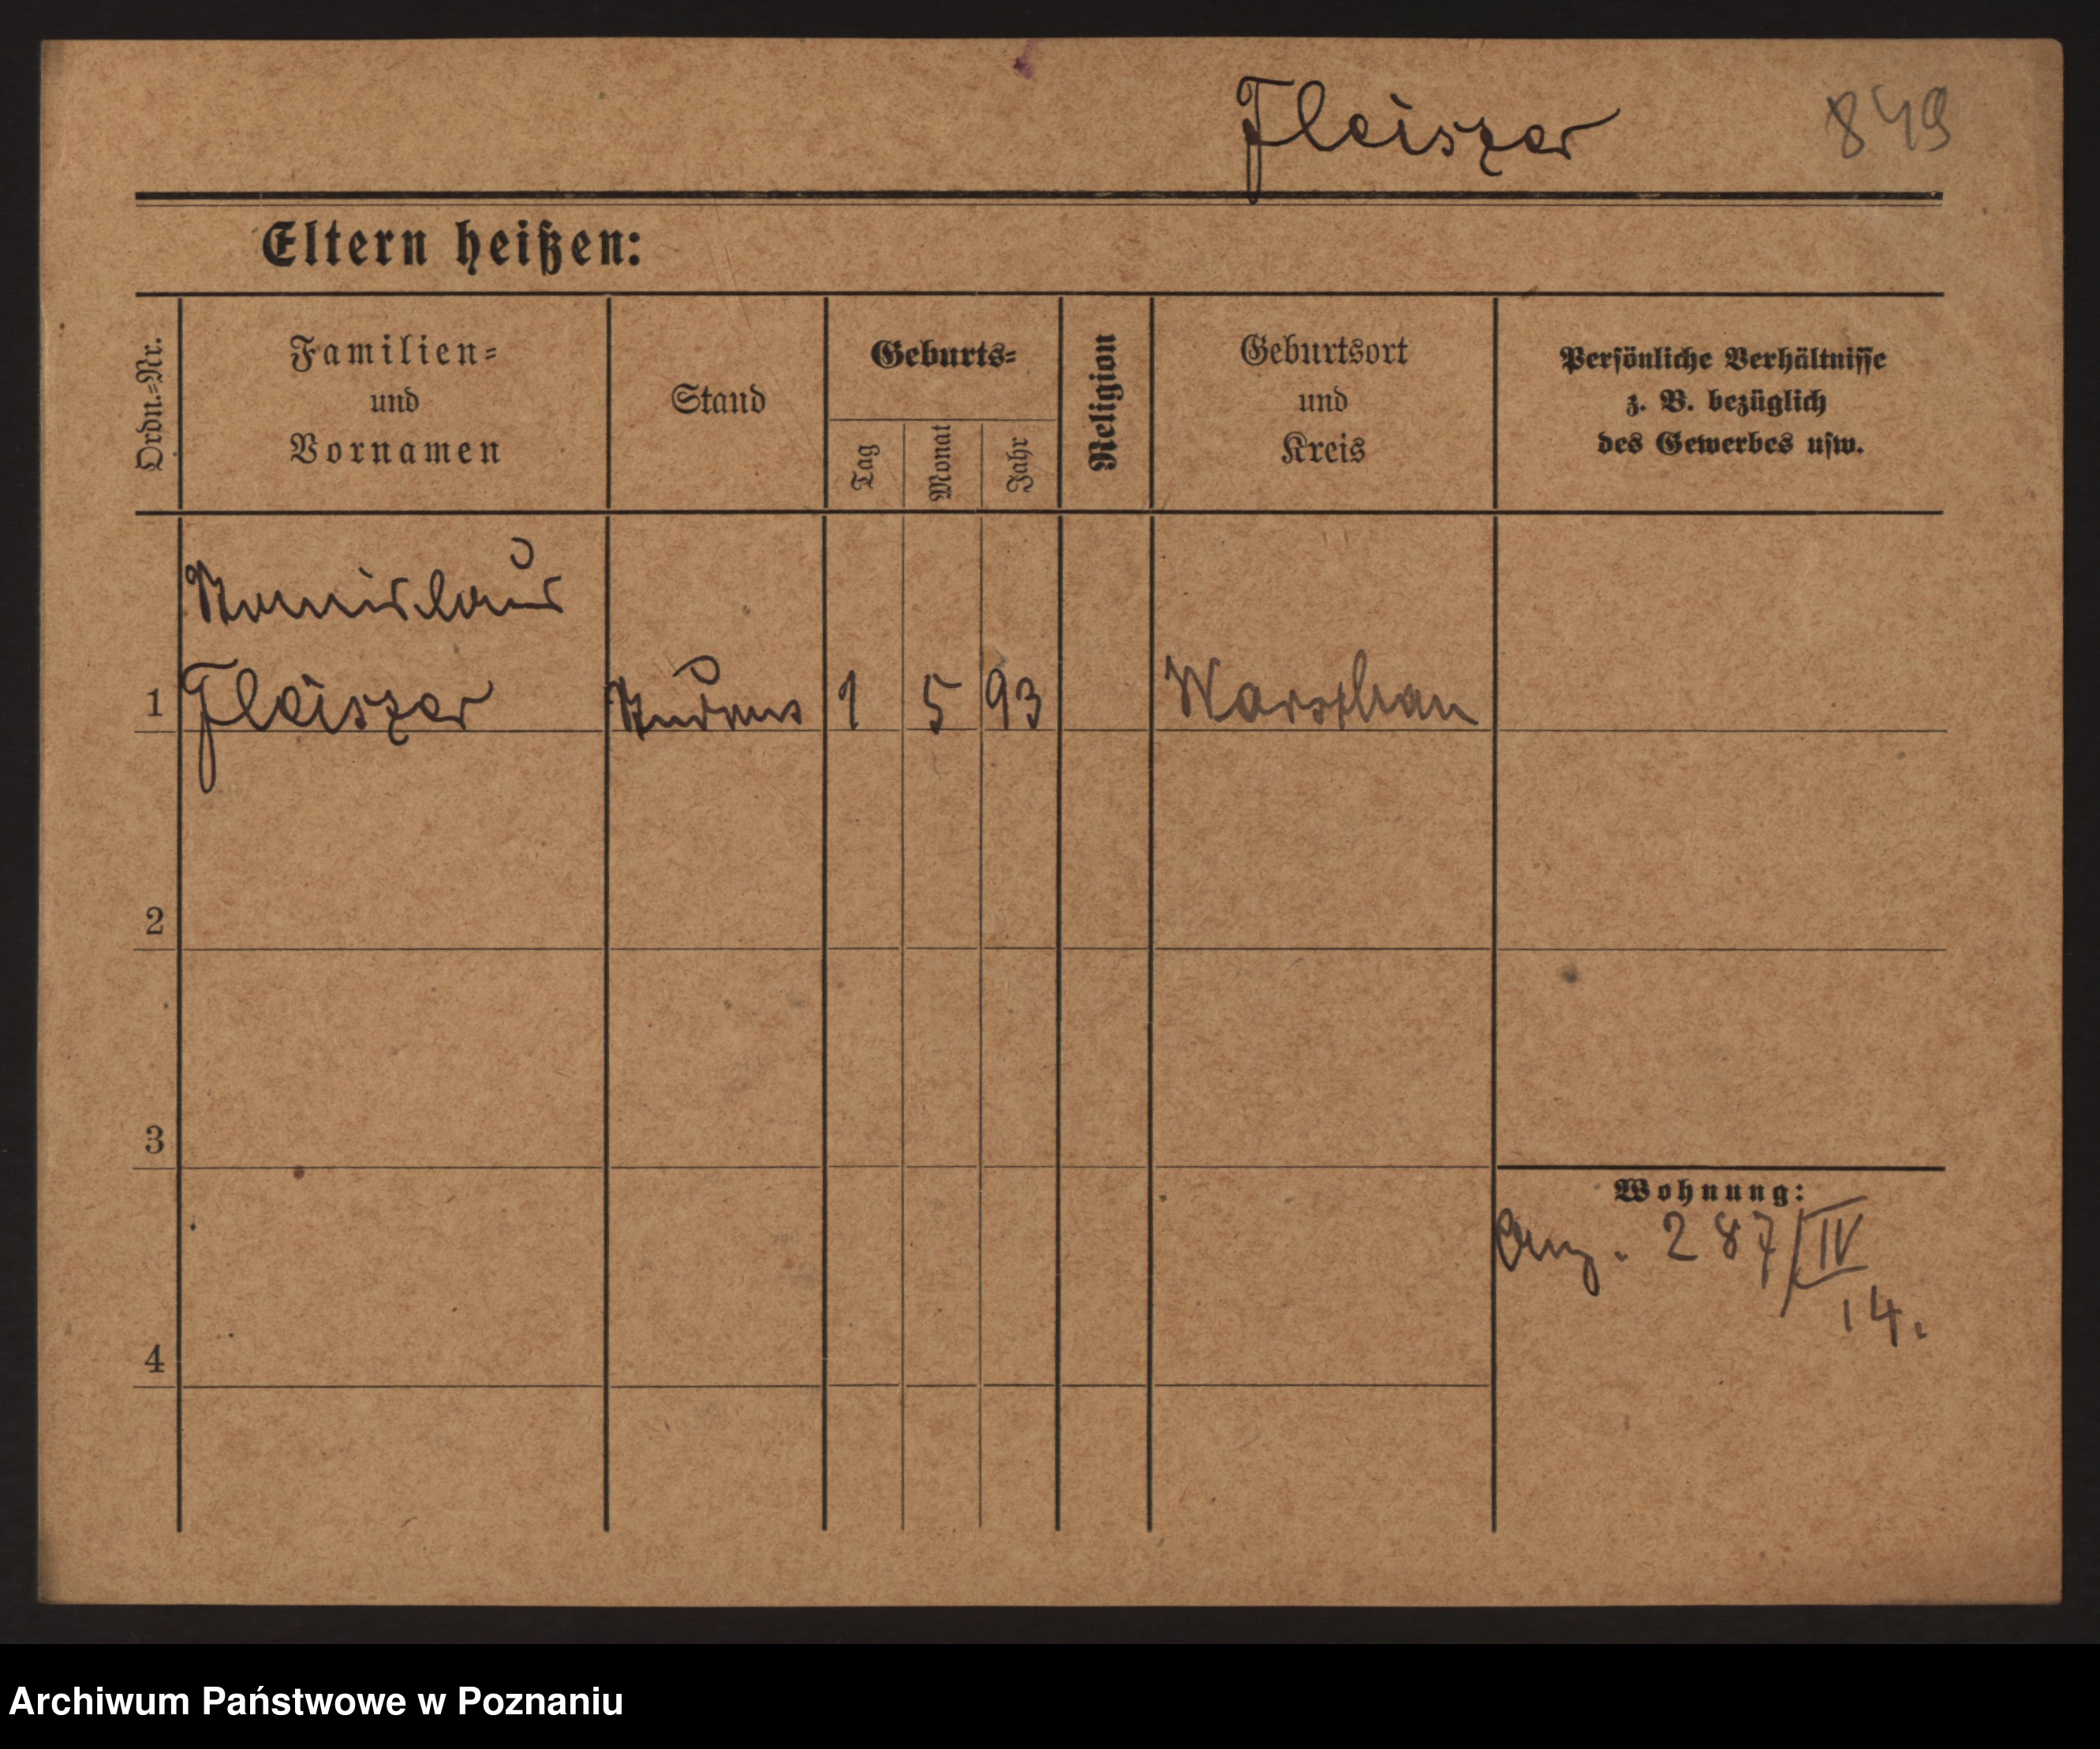 Fleiszer 849
Eltern heißen:
Ordn.=Nr.
Familien=
und
Vornamen
Stand
Geburts=
Tag
Monat
Jahr
Religion
Geburtsort
und
Kreis
Persönliche Verhältnisse
z. B. bezüglich
des Gewerbes usw.
1 Fleiszer 1 5 93 Warschau
2
3
Wohnung:
287/IV
14.
4
Archiwum Państwowe w Poznaniu